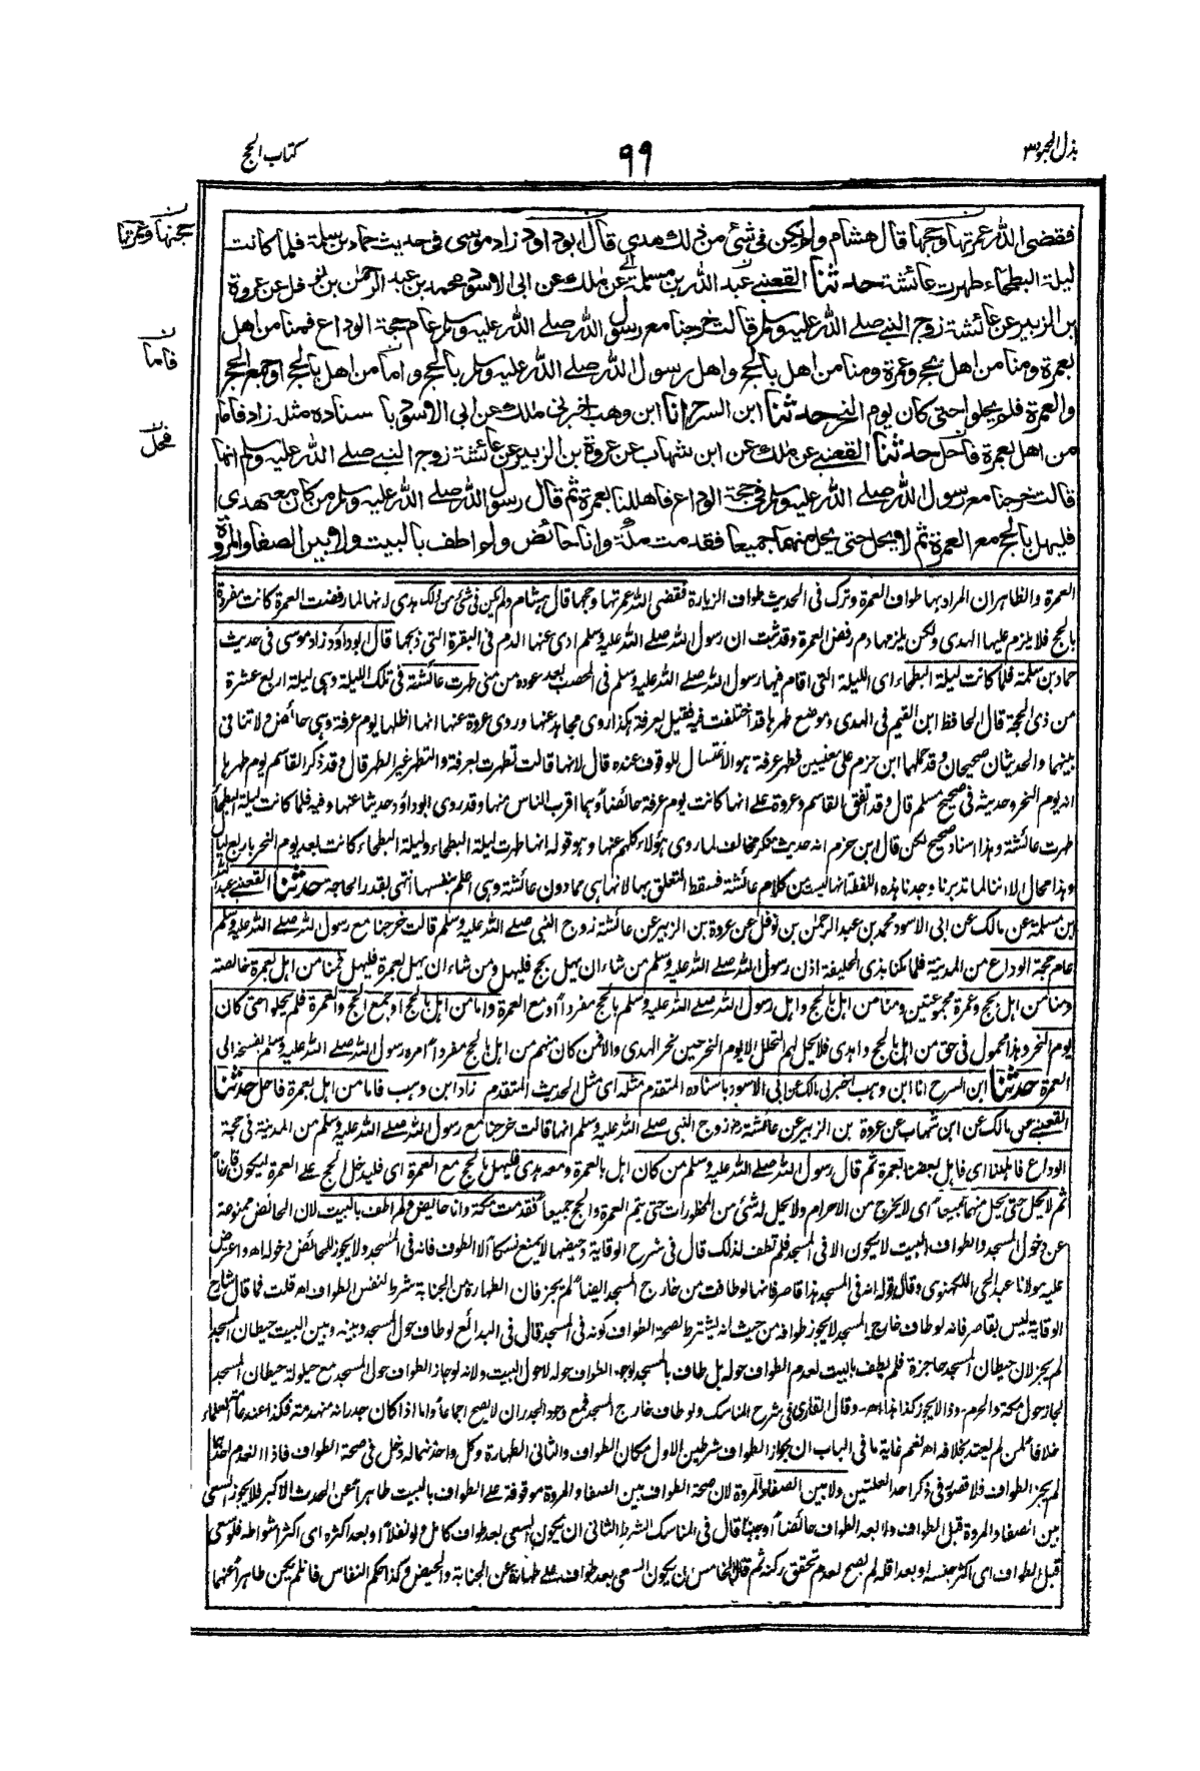 بذل المجهود ٣
٩٩
كتاب الحج
حجتها وعمرتها
فاما
فحل
فقضى الله عمرتها وحجها قال هشام ولم يكن في شئ من ذلك هدى قال ابوداود زاد موسى في حديث حماد بن سلمة فلما كانت
ليلة البطحاء طهرت عائشة حدثنا القعنبي عبد الله بن مسلمة عن ملك عن ابى الاسود محمد بن عبد الرحمن بن نوفل عن عروة
بن الزبير عن عائشة زوج النبي صلے الله عليه وسلم قالت خرجنا مع رسول الله صلے الله عليه وسلم عام حجة الوداع فمنا من اهل
بعمرة ومنا من اهل بحج وعمرة ومنا من اهل بالحج واهل رسول الله صلے الله عليه وسلم بالحج واما من اهل بالحج اوجمع الحج
والعمرة فلم يحلوا حتى كان يوم النحر حدثنا ابن السرح انا ابن وهب اخبرنى ملك عن ابى الاسود با سناده مثله زاد فاما
من اهل بعمرة فاحل حدثنا القعنبي عن ملك عن ابن شهاب عن عروة بن الزبير عن عائشة زوج النبي صلے الله عليه وسلم انها
قالت خرجنا مع رسول الله صلے الله عليه وسلم في حجة الوداع فاهللنا بعمرة ثم قال رسول الله صلے الله عليه وسلم من كان معه هدى
فليهل بالحج مع العمرة ثم لا يحل حتى يحل منهما جميعا فقدمت مكة وانا حائض ولم اطف بالبيت ولا بين الصفا والمروة
العمرة والظاهر ان المراد بها طواف العمرة وترك فى الحديث طواف الزيارة فقضى الله عمرتها وحجها قال هشام ولم يكن فى شئ من ذلك هدى لانها لما رفضت العمرة كانت مفردة
بالحج فلا يلزم عليها الهدى ولكن يلزمها دم رفض العمرة وقد ثبت ان رسول الله صلے الله عليه وسلم ادى عنها الدم فى البقرة التى ذبحها قال ابوداؤد زاد موسى فى حديث
حماد بن سلمة فلما كانت ليلة البطحاء اى الليلة التى اقام فيها رسول الله صلے الله عليه وسلم فى المحصب بعد عوده من منى طهرت عائشة فى تلك الليلة وهى ليلة اربع عشرة
من ذى الحجة قال الحافظ ابن القيم فى الهدى وموضع طهرها قد اختلفت فيه فقيل بعرفة هكذا روى مجاهد عنها وروى عروة عنها انها اظلها يوم عرفة وهى حائض ولا تنافى
بينهما والحديثان صحيحان وقد حملها ابن حزم على معنيين فطهر عرفة هو الاغتسال للوقوف عنده قال لانها قالت تطهرت بعرفة والتطهر غير الطهر قال وقد ذكر القاسم يوم طهرها
انه يوم النحر وحديثه فى صحيح مسلم قال وقد اتفق القاسم وعروة على انها كانت يوم عرفة حائضاً وهما اقرب الناس منها وقد روى ابوداؤد حديثا عنها وفيه فلما كانت ليلة البطحاء
طهرت عائشة وهذا اسناد صحيح لكن قال ابن حزم انه حديث منكر مخالف لما روى هؤلاء كلهم عنها وهو قوله انها طهرت ليلة البطحاء وليلة البطحاء كانت بعد يوم النحر باربع ليال
وهذا محال لاننا لما تدبرنا وجدنا هذه اللفظة انها ليست من كلام عائشة فسقط التعلق بها لانها هى ممادون عائشة وهى اعلم بنفسها انتهى بقدر الحاجة حدثنا القعنبي عبد الله
ابن مسلمة عن مالك عن ابى الاسود محمد بن عبد الرحمن بن نوفل عن عروة بن الزبير عن عائشة زوج النبى صلے الله عليه وسلم قالت خرجنا مع رسول الله صلے الله عليه وسلم
عام حجة الوداع من المدينة فلما كنا بذى الحليفة اذن رسول الله صلے الله عليه وسلم من شاء ان يهل بحج فليهل ومن شاء ان يهل بعمرة فليهل فمنا من اهل بعمرة خالصة
ومنا من اهل بحج وعمرة مجموعتين ومنا من اهل بالحج واهل رسول الله صلے الله عليه وسلم بالحج مفرداً او مع العمرة واما من اهل بالحج اوجمع الحج والعمرة فلم يحلوا حتى كان
يوم النحر وهذا محمول فى حق من اهل بالحج واهدى فلا يحل لهم التحلل الا يوم النحر حين نحر الهدى والا فمن كان منهم من اهل بالحج مفرداً امره رسول الله صلے الله عليه وسلم بفسخه الى
العمرة حدثنا ابن السرح انا ابن وهب اخبرنى مالك عن ابى الاسود باسناده المتقدم مثله اى مثل الحديث المتقدم زاد ابن وهب فاما من اهل بعمرة فاحل حدثنا
القعنبي عن مالك عن ابن شهاب عن عروة بن الزبير عن عائشة رض زوج النبى صلے الله عليه وسلم انها قالت خرجنا مع رسول الله صلے الله عليه وسلم من المدينة فى حجة
الوداع فاهللنا اى فاهل بعضنا بعمرة ثم قال رسول الله صلے الله عليه وسلم من كان اهل بالعمرة ومعه هدى فليهل بالحج مع العمرة اى فليدخل الحج على العمرة ليكون قارناً
ثم لا يحل حتى يحل منهما جميعاً اى لا يخرج من الاحرام ولا يحل له شئ من المحظورات حتى يتم العمرة والحج جميعاً فقدمت مكة وانا حائض ولم اطف بالبيت لان الحائض ممنوعة
عن دخول المسجد والطواف بالبيت لا يكون الا فى المسجد فلم تطف لذلك قال فى شرح الوقاية وحيضها لا يمنع نسكا الا الطواف فانه فى المسجد ولا يجوز للحائض دخوله اه واعترض
عليه مولانا عبد الحى اللكهنوى وقال قوله انه فى المسجد هذا قاصر فانها لوطافت من خارج المسجد ايضاً لم يجز فان الطهارة من الجنابة شرط لنفس الطواف اه قلت فما قال شارح
الوقاية ليس بقاصر فانه لوطاف خارج المسجد لا يجوز طوافه من حيث انه يشترط لصحة الطواف كونه فى المسجد قال فى البدائع لوطاف حول المسجد وبينه وبين البيت حيطان المسجد
لم يجز لان حيطان المسجد حاجزة فلم يطف بالبيت لعدم الطواف حوله بل طاف بالمسجد لوجود الطواف حوله لاحول البيت ولانه لو جاز الطواف حول المسجد مع حيلولة حيطان المسجد
لجاز حول مكة والحرم وذا لا يجوز كذا هذا اه وقال القارى فى شرح المناسك ولوطاف خارج المسجد فمع وجود الجدران لا يصح اجماعاً واما اذا كان جدرانه منهدمة فكذا عند عامة العلماء
خلافاً لمن لم يعتد بخلافه اه نعم غاية ما فى الباب ان لجواز الطواف شرطين الاول مكان الطواف والثانى الطهارة وكل واحد منهما له دخل فى صحة الطواف فاذا انعدم احدهما
لم يجز الطواف فلا قصور فى ذكر احد العلتين ولا بين الصفا والمروة لان صحة الطواف بين الصفا والمروة موقوفة على الطواف بالبيت طاهراً عن الحدث الاكبر فلا يجوز السعى
بين الصفا والمروة قبل الطواف ولا بعد الطواف حائضاً او جنبا قال فى المناسك الشرط الثانى ان يكون السعى بعد طواف كامل ولو نفلاً او بعد اكثره اى اكثر اشواطه فلو سعى
قبل الطواف اى اكثر جنسه او بعد اقله لم يصح لعدم تحقق ركنه ثم قال الخامس ان يكون السعى بعد طواف على طهارة عن الجنابة والحيض وكذا حكم النفاس فان لم يكن طاهراً عنهما